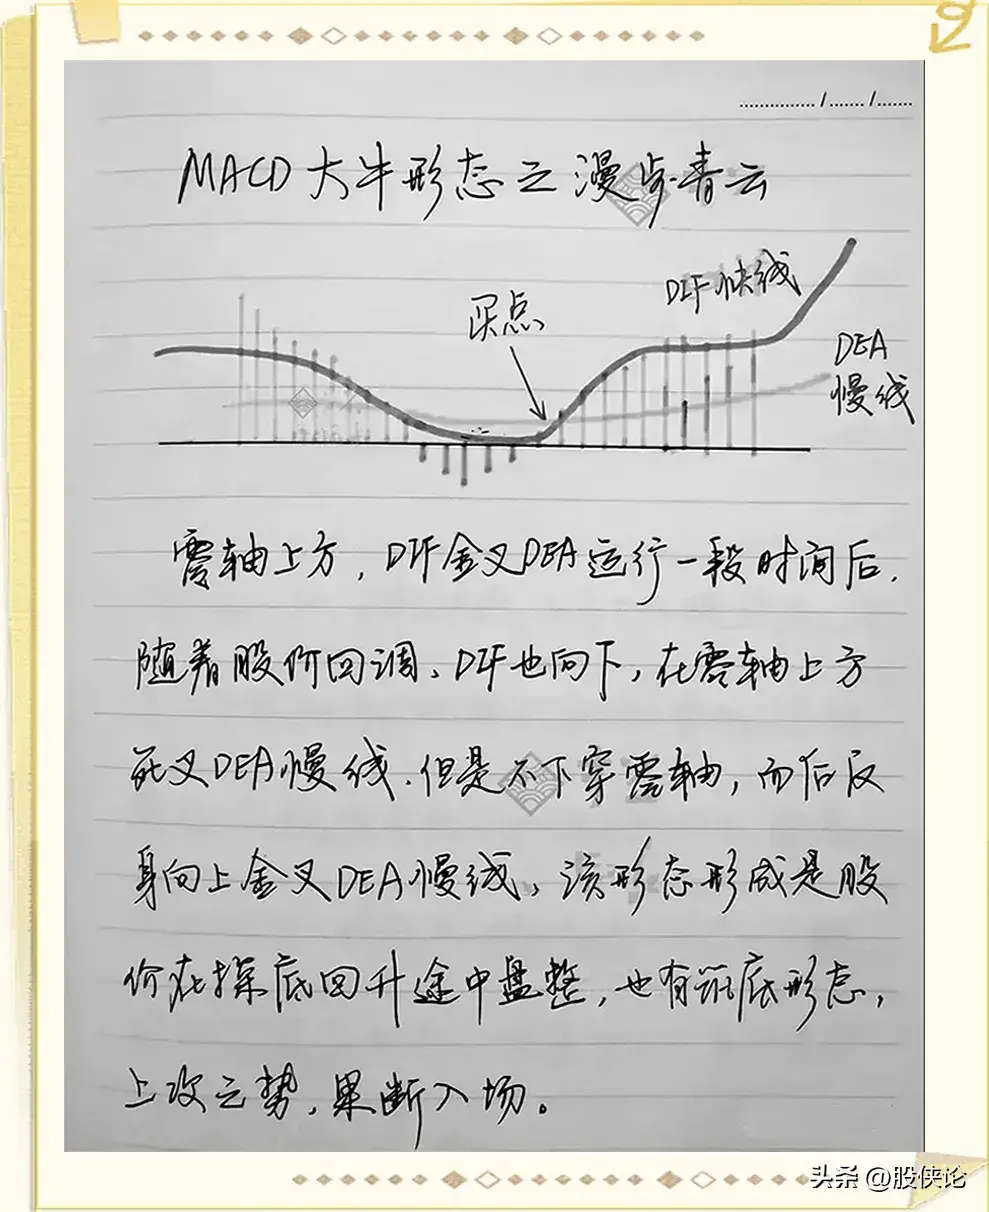 MACD大牛形态之漫步青云
DIF快线
买点
DEA
慢线
零轴上方，DIF金叉DEA运行一段时间后，
随着股价回调，DIF也向下，在零轴上方
死叉DEA慢线.但是不下穿零轴，而后反
身向上金叉DEA慢线，该形态形成是股
价在探底回升途中盘整，也有筑底形态，
上攻之势，果断入场。
头条 @股侠论